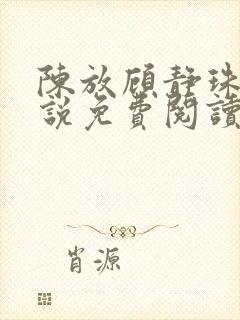 陳放顧靜珠
說免費閱讀
肖源